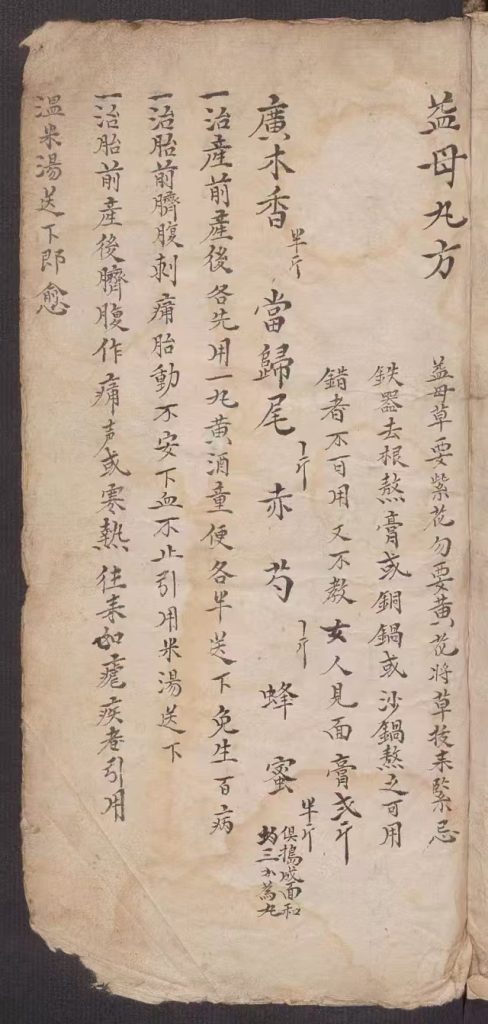 益母丸方
益母草要紫花勿要黄花將草拔来緊忌
鉄器去根熬膏或銅鍋或沙鍋熬之可用
錯者不可用又不教女人見面膏弍斤
廣木香半斤 當歸尾〡斤 赤芍〡斤 蜂蜜半斤
俱搗成面和
均三分為丸
一治產前產後各先用一丸黄酒童便各半送下免生百病
一治胎前臍腹刺痛胎動不安下血不止引用米湯送下
一治胎前產後臍腹作痛声或寒熱往来如瘧疾者引用
温米湯送下即愈